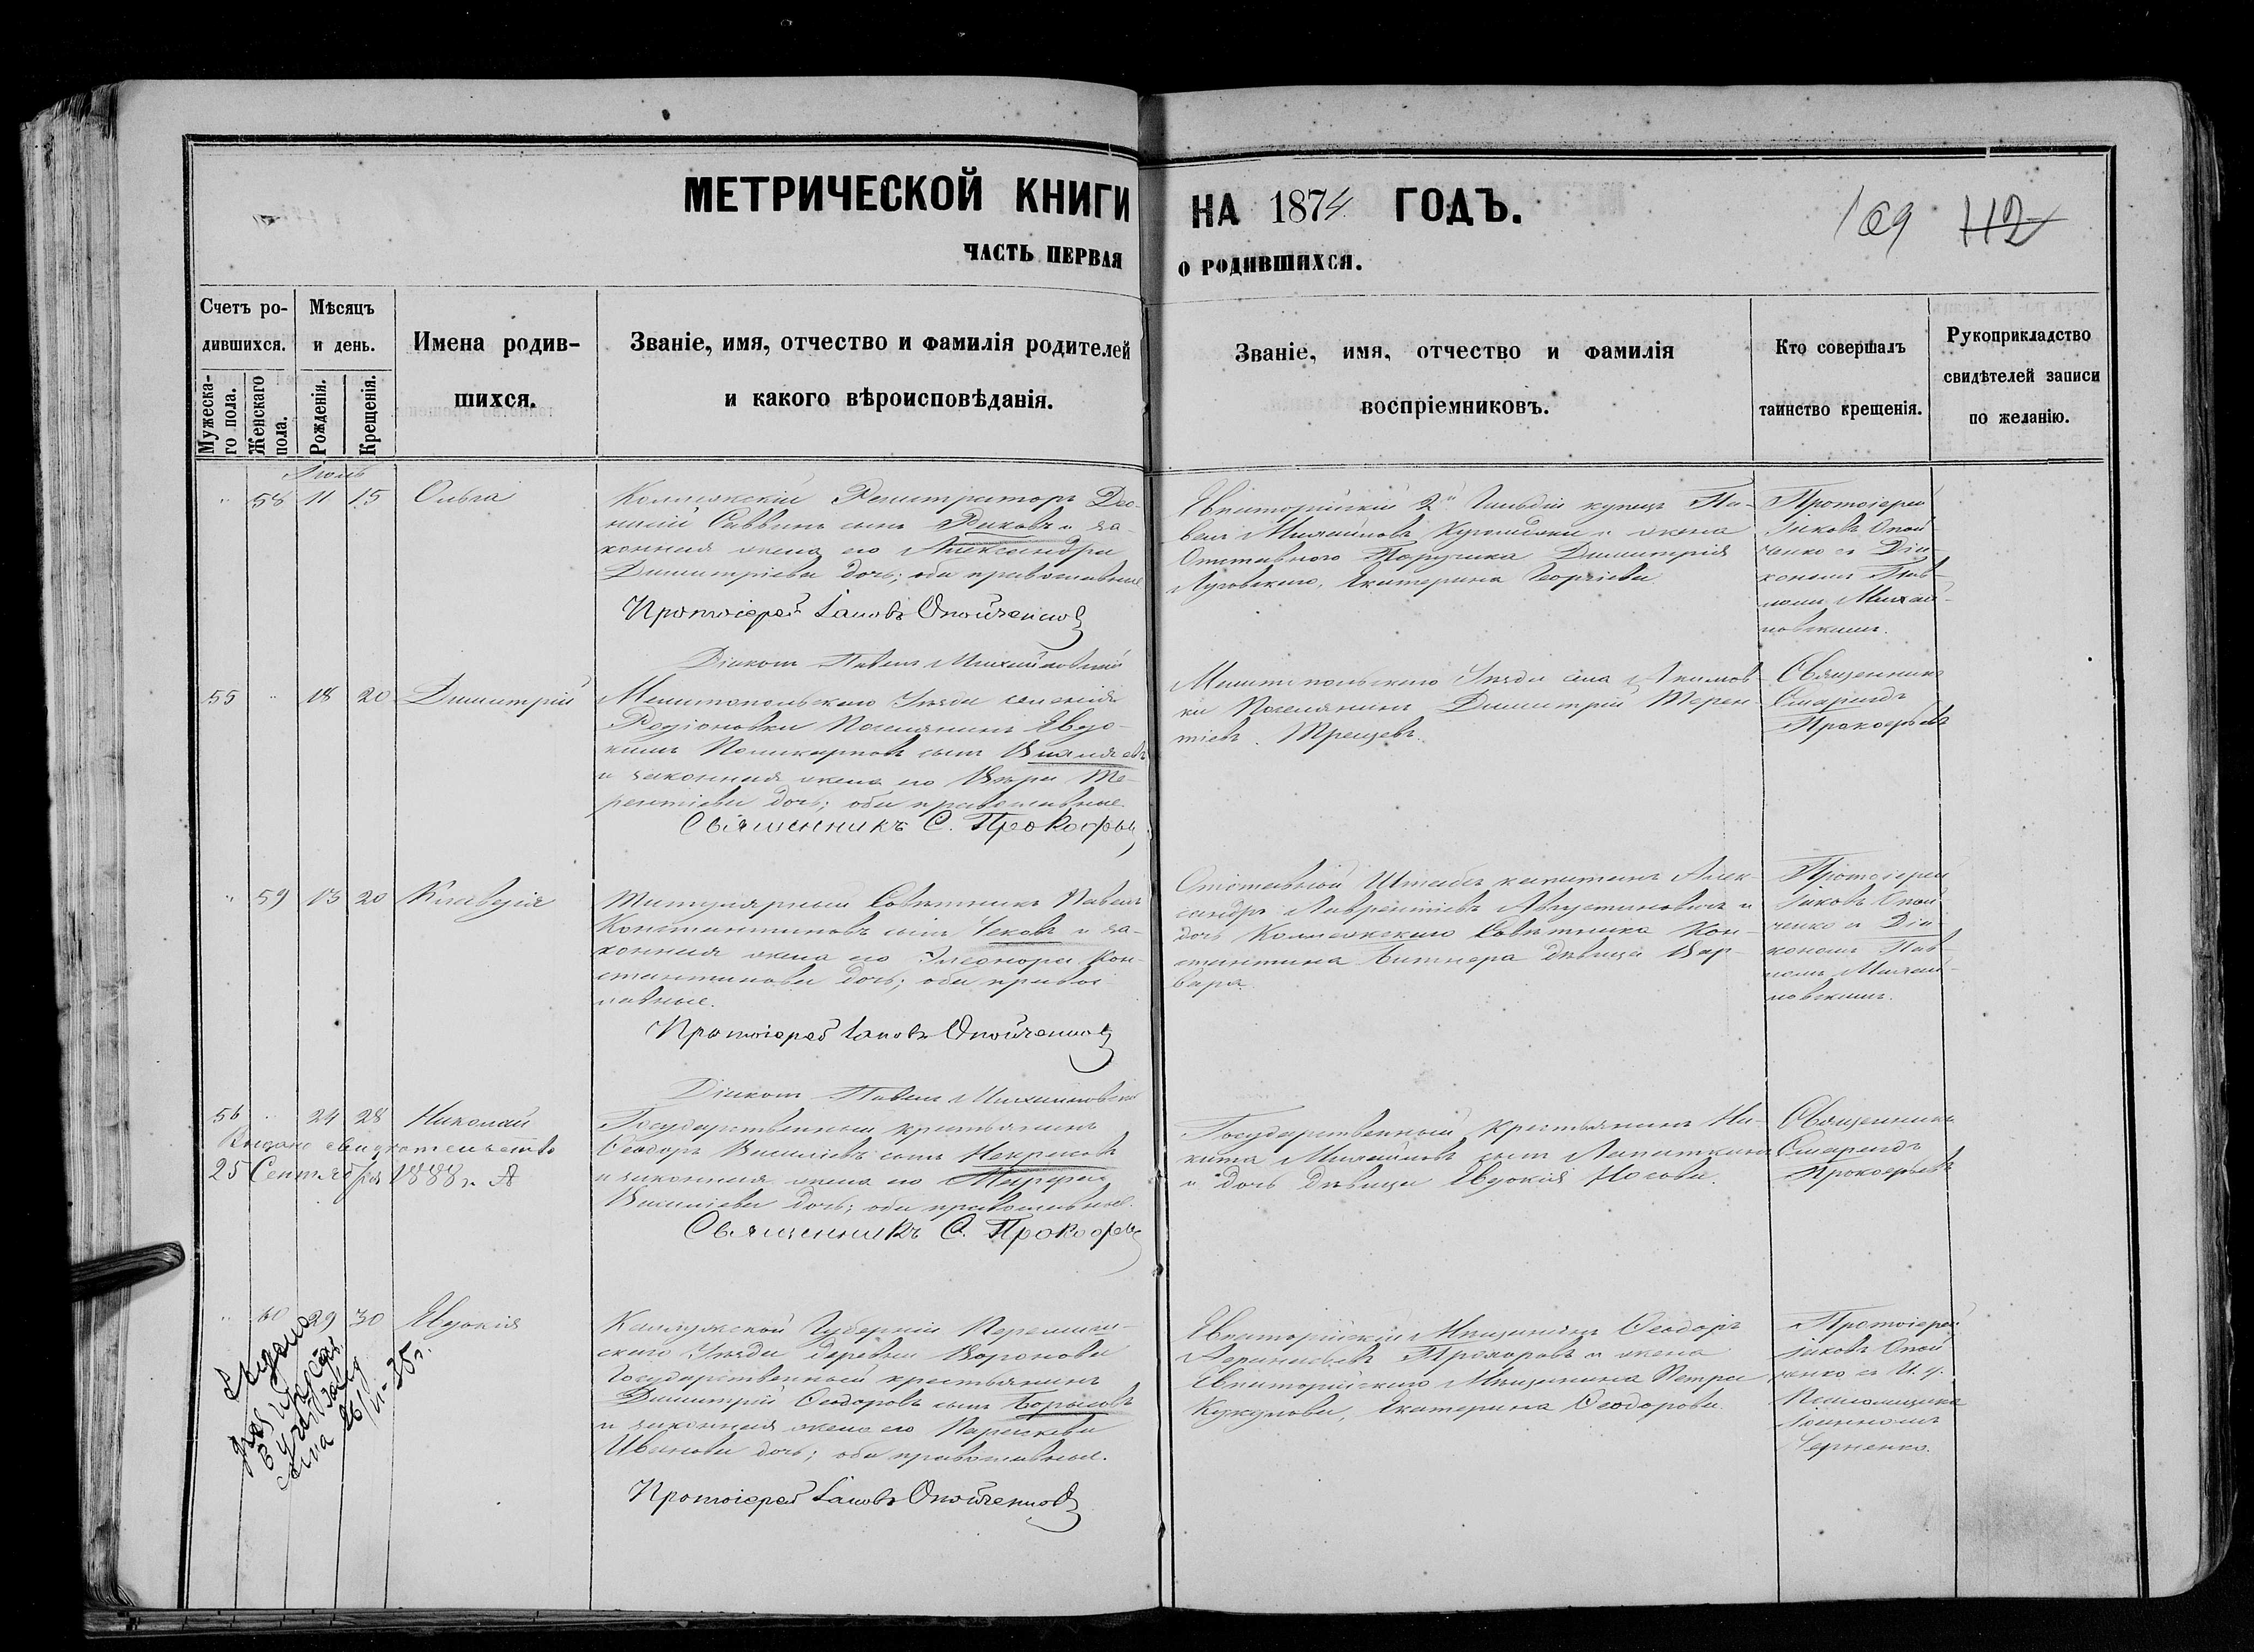 МЕТРИЧЕСКОЙ КНИГИ НА 1874 ГОДЪ.
169 112
ЧАСТЬ ПЕРВАЯ О РОДИВШИХСЯ.
Счетъ ро-
дившихся.
Мужеска-
го пола.
Женскаго
пола.
Мѣсяцъ
и день.
Рожденія.
Крещенія.
Имена родив-
шихся.
Званіе, имя, отчество и фамилія родителей
и какого вѣроисповѣданія.
Званіе, имя, отчество и фамилія
воспріемниковъ.
Кто совершалъ
таинство крещенія.
Рукоприкладство
свидѣтелей записи
по желанію.
" 58 11 15 Ольга
Коллежскій Регистраторъ Део-
нисій Саввинъ сынъ и за-
конная жена его Александра
Димитріева дочь; оба православные
Протоіерей Іаковъ Опойченко
Діаконъ Павелъ Михайловскій
Евпаторійскій 2й Гильдіи купецъ Па-
велъ Михайловъ и жена
Отставного Поручика Димитрія
Екатерина Георгіева
Протоіерей
Іаковъ Опой-
ченко съ Діа-
кономъ Пав-
ломъ Михай-
ловскимъ.
55 " 18 20 Димитрій
Мелитопольскаго Уѣзда селенія
Родіоновки Поселянинъ Евдо-
кимъ Поликарповъ сынъ
и законная жена его Вѣра Те-
рентіева дочь; оба православные.
Священникъ С. Прокофьев
Мелитопольскаго Уѣзда села Акимов-
ки Поселянинъ Димитрій Терен-
тіевъ
Священникъ
Смарагдъ
Прокофьевъ
" 59 13 20 Клавдія
Титулярный Совѣтникъ Павелъ
Константиновъ сынъ Чеховъ и за-
конная жена его Элеонора Кон-
стантинова дочь; оба правос-
лавные.
Протоіерей Іаковъ Опойченко
Діаконъ Павелъ Михайловскій
Отставной Штабсъ капитанъ Алек-
сандръ Лаврентіевъ Августиновичъ и
дочь Коллежскаго Совѣтника Кон-
стантина Битнера дѣвица Вар-
вара.
Протоіерей
Іаковъ Опой-
ченко съ Діа-
кономъ Пав-
ломъ Михай-
ловскимъ.
56 " 24 28 Николай
Выдано свидѣтельство
25 Сентября 1888 г.
Государственный крестьянинъ
Ѳеодоръ Василіевъ сынъ Некрасовъ
и законная жена его
Василіева дочь; оба православные.
Священникъ С. Прокофьев
Государственный Крестьянинъ Ни-
кита Михайловъ сынъ Лапыткинъ
и дочь дѣвица Евдокія Носова.
Священникъ
Смарагдъ
Прокофьевъ
" 60 29 30 Евдокія
Выдано
Калужской Губерніи Перемыш-
скаго Уѣзда деревни Воронова
Государственный крестьянинъ
Димитрій Ѳеодоровъ сынъ Борисовъ
и законная жена его Параскева
Иванова дочь; оба православные.
Протоіерей Іаковъ Опойченко
Евпаторійскій Мѣщанинъ Ѳеодоръ
Прохоровъ и жена
Евпаторійскаго Мѣщанина Петра
Кукулова, Екатерина Ѳеодорова.
Протоіерей
Іаковъ Опой-
ченко съ И. д.
Псаломщика
Іоанномъ
Черненко.